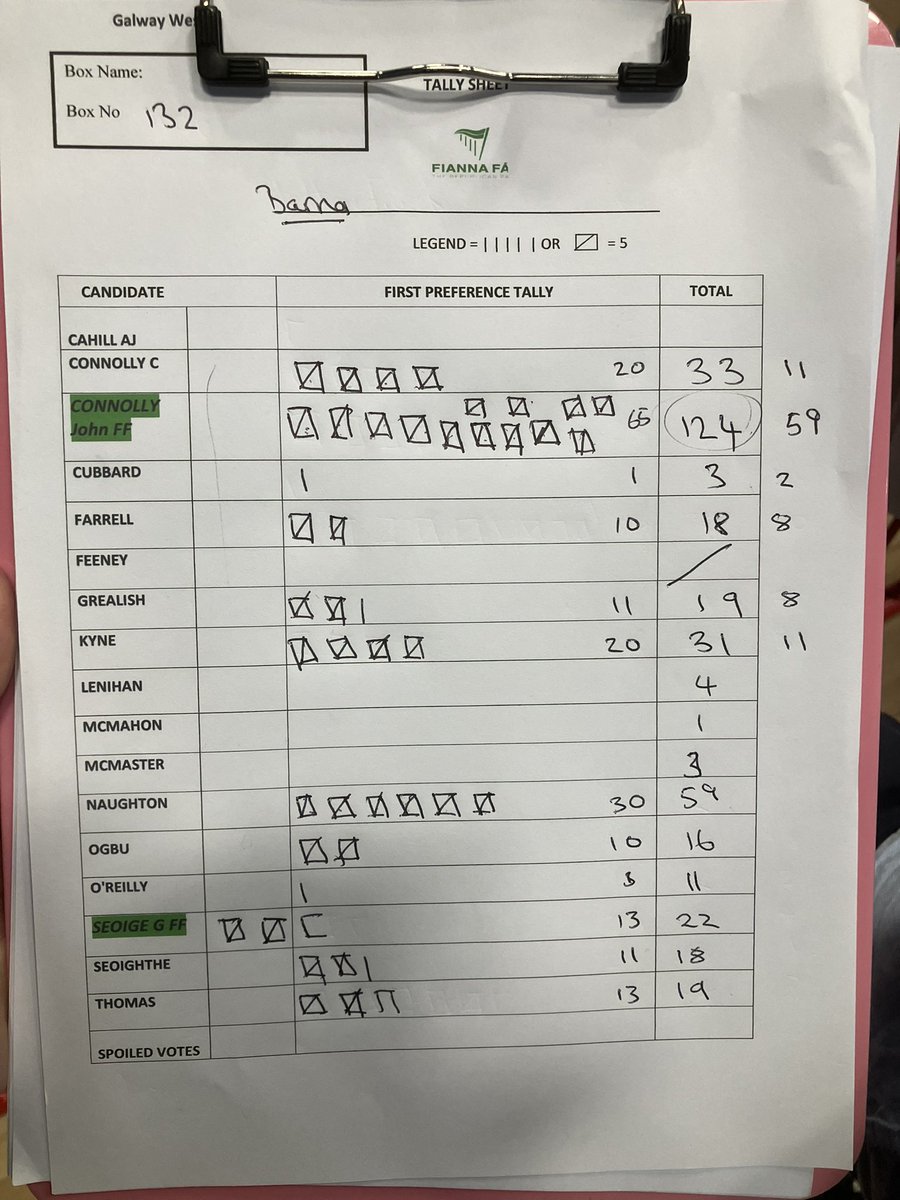 Galway Wes
Box Name:
Box No 132
TALLY SHEET
FIANNA FÁ
Barna
LEGEND = | | | | | OR = 5
CANDIDATE FIRST PREFERENCE TALLY TOTAL
CAHILL AJ
CONNOLLY C 20 33 11
CONNOLLY
John FF 65 124 59
CUBBARD 1 3 2
FARRELL 10 18 8
FEENEY
GREALISH 11 19 8
KYNE 20 31 11
LENIHAN 4
MCMAHON 1
MCMASTER 3
NAUGHTON 30 59
OGBU 10 16
O'REILLY 11
SEOIGE G FF 13 22
SEOIGHTHE 11 18
THOMAS 13 19
SPOILED VOTES